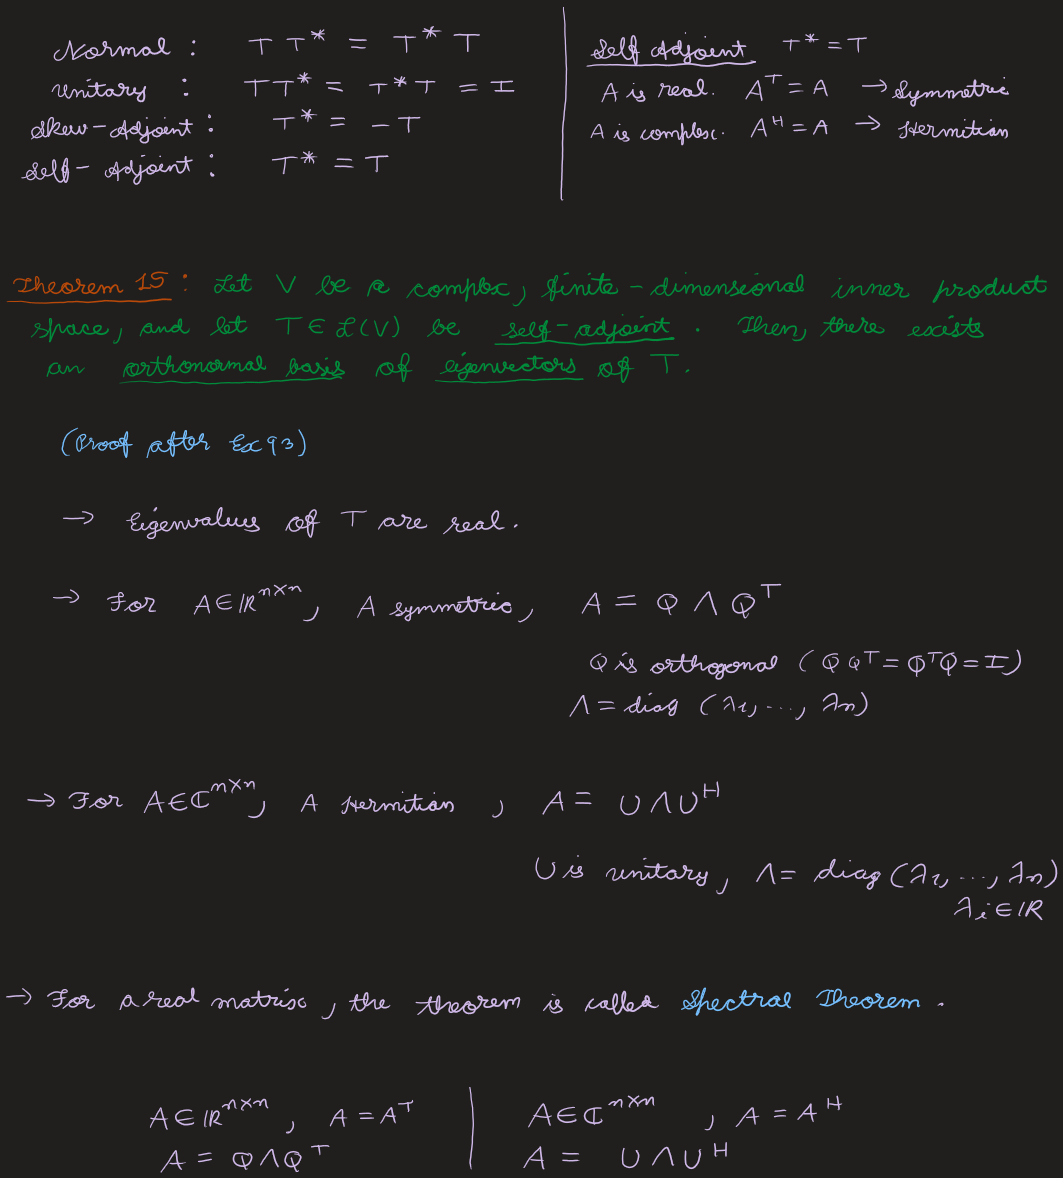 Normal : T T* = T* T
Unitary : T T* = T* T = I
Skew-Adjoint : T* = -T
Self-Adjoint : T* = T
Self Adjoint T* = T
A is real. Aᵀ = A → Symmetric
A is complex. Aᴴ = A → Hermitian
Theorem 15 : Let V be a complex, finite-dimensional inner product
space, and let T ∈ ℒ(V) be self-adjoint. Then, there exists
an orthonormal basis of eigenvectors of T.
(Proof after Ex 93)
→ Eigenvalues of T are real.
→ For A ∈ ℝⁿˣⁿ, A symmetric, A = Q Λ Qᵀ
Q is orthogonal (Q Qᵀ = Qᵀ Q = I)
Λ = diag (λ₁, ..., λₙ)
→ For A ∈ ℂⁿˣⁿ, A Hermitian, A = U Λ Uᴴ
U is unitary, Λ = diag (λ₁, ..., λₙ)
λᵢ ∈ ℝ
→ For a real matrix, the theorem is called Spectral Theorem.
A ∈ ℝⁿˣⁿ, A = Aᵀ
A = Q Λ Qᵀ
A ∈ ℂⁿˣⁿ, A = Aᴴ
A = U Λ Uᴴ